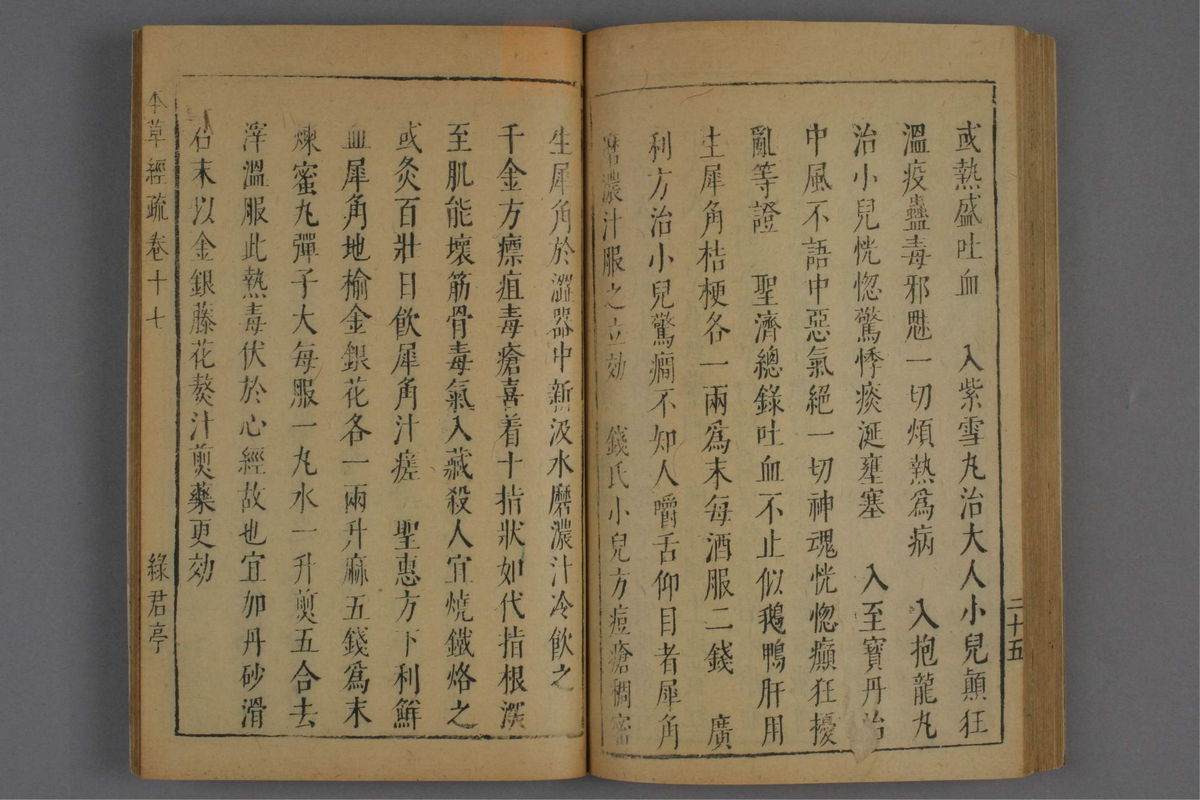 或熱盛吐血　入紫雪丸治大人小兒顛狂
溫疫蠱毒邪魅一切煩熱爲病　入抱龍丸
治小兒恍惚驚悸痰涎壅塞　入至寶丹治
中風不語中惡氣絕一切神魂恍惚癲狂擾
亂等證　聖濟總錄吐血不止似鵝鴨肝用
生犀角桔梗各一兩爲末每酒服二錢　廣
利方治小兒驚癎不知人嚼舌仰目者犀角
磨濃汁服之立効　錢氏小兒方痘瘡稠密
二十五
生犀角於澀器中新汲水磨濃汁冷飲之
千金方瘭疽毒瘡喜着十指狀如代指根深
至肌能壞筋骨毒氣入藏殺人宜燒鐵烙之
或灸百壯日飲犀角汁瘥　聖惠方下利鮮
血犀角地榆金銀花各一兩升麻五錢爲末
煉蜜丸彈子大每服一丸水一升煎五合去
滓溫服此熱毒伏於心經故也宜加丹砂滑
石末以金銀藤花熬汁煎藥更効
本草經疏卷十七　綠君亭